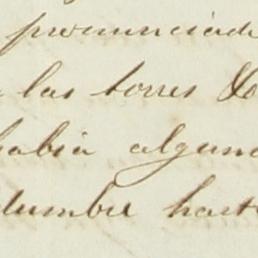 pronunciad
las torres
habia algun
dumbre hast